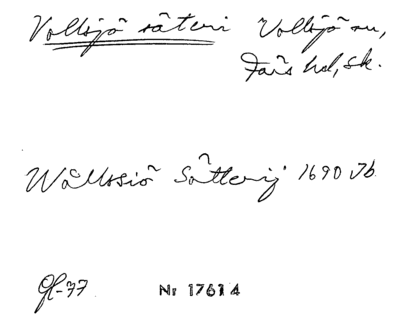 Vollsjö säteri Vollsjö sn,
Färs hd, Sk.
Wållssiö Sätterij 1690 Jb
Gl-77 Nr 17614